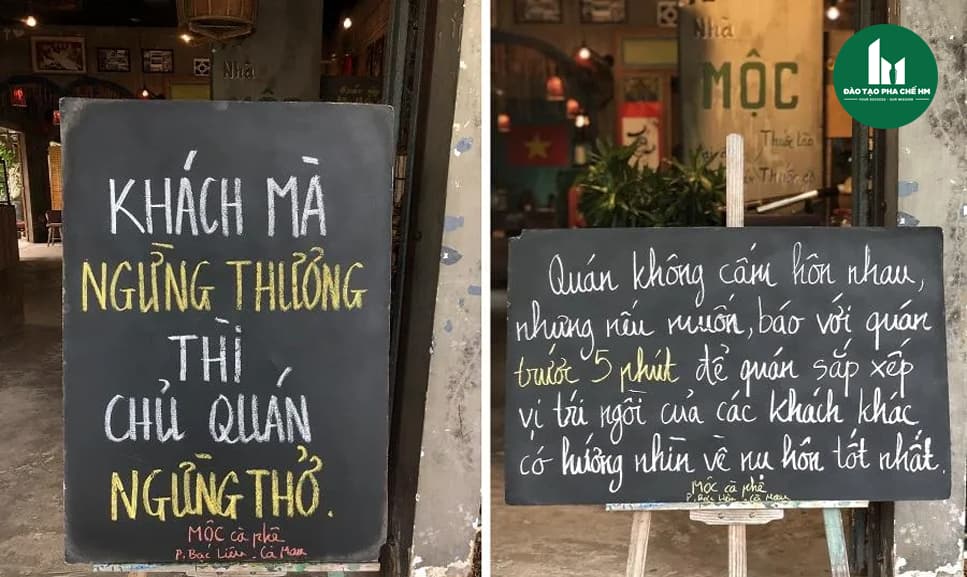 Nhà
KHÁCH MÀ
NGỪNG THƯỞNG
THÌ
CHỦ QUÁN
NGỪNG THỞ.
MỘC cà phê
P. Bạc Liêu - Cà Mau
Nhà
MỘC
Thuốc Lào
ĐÀO TẠO PHA CHẾ HM
YOUR SUCCESS - OUR MISSION
Quán không cấm hôn nhau,
nhưng nếu muốn, báo với quán
trước 5 phút để quán sắp xếp
vị trí ngồi của các khách khác
có hướng nhìn về nụ hôn tốt nhất.
MỘC cà phê
P. Bạc Liêu - Cà Mau